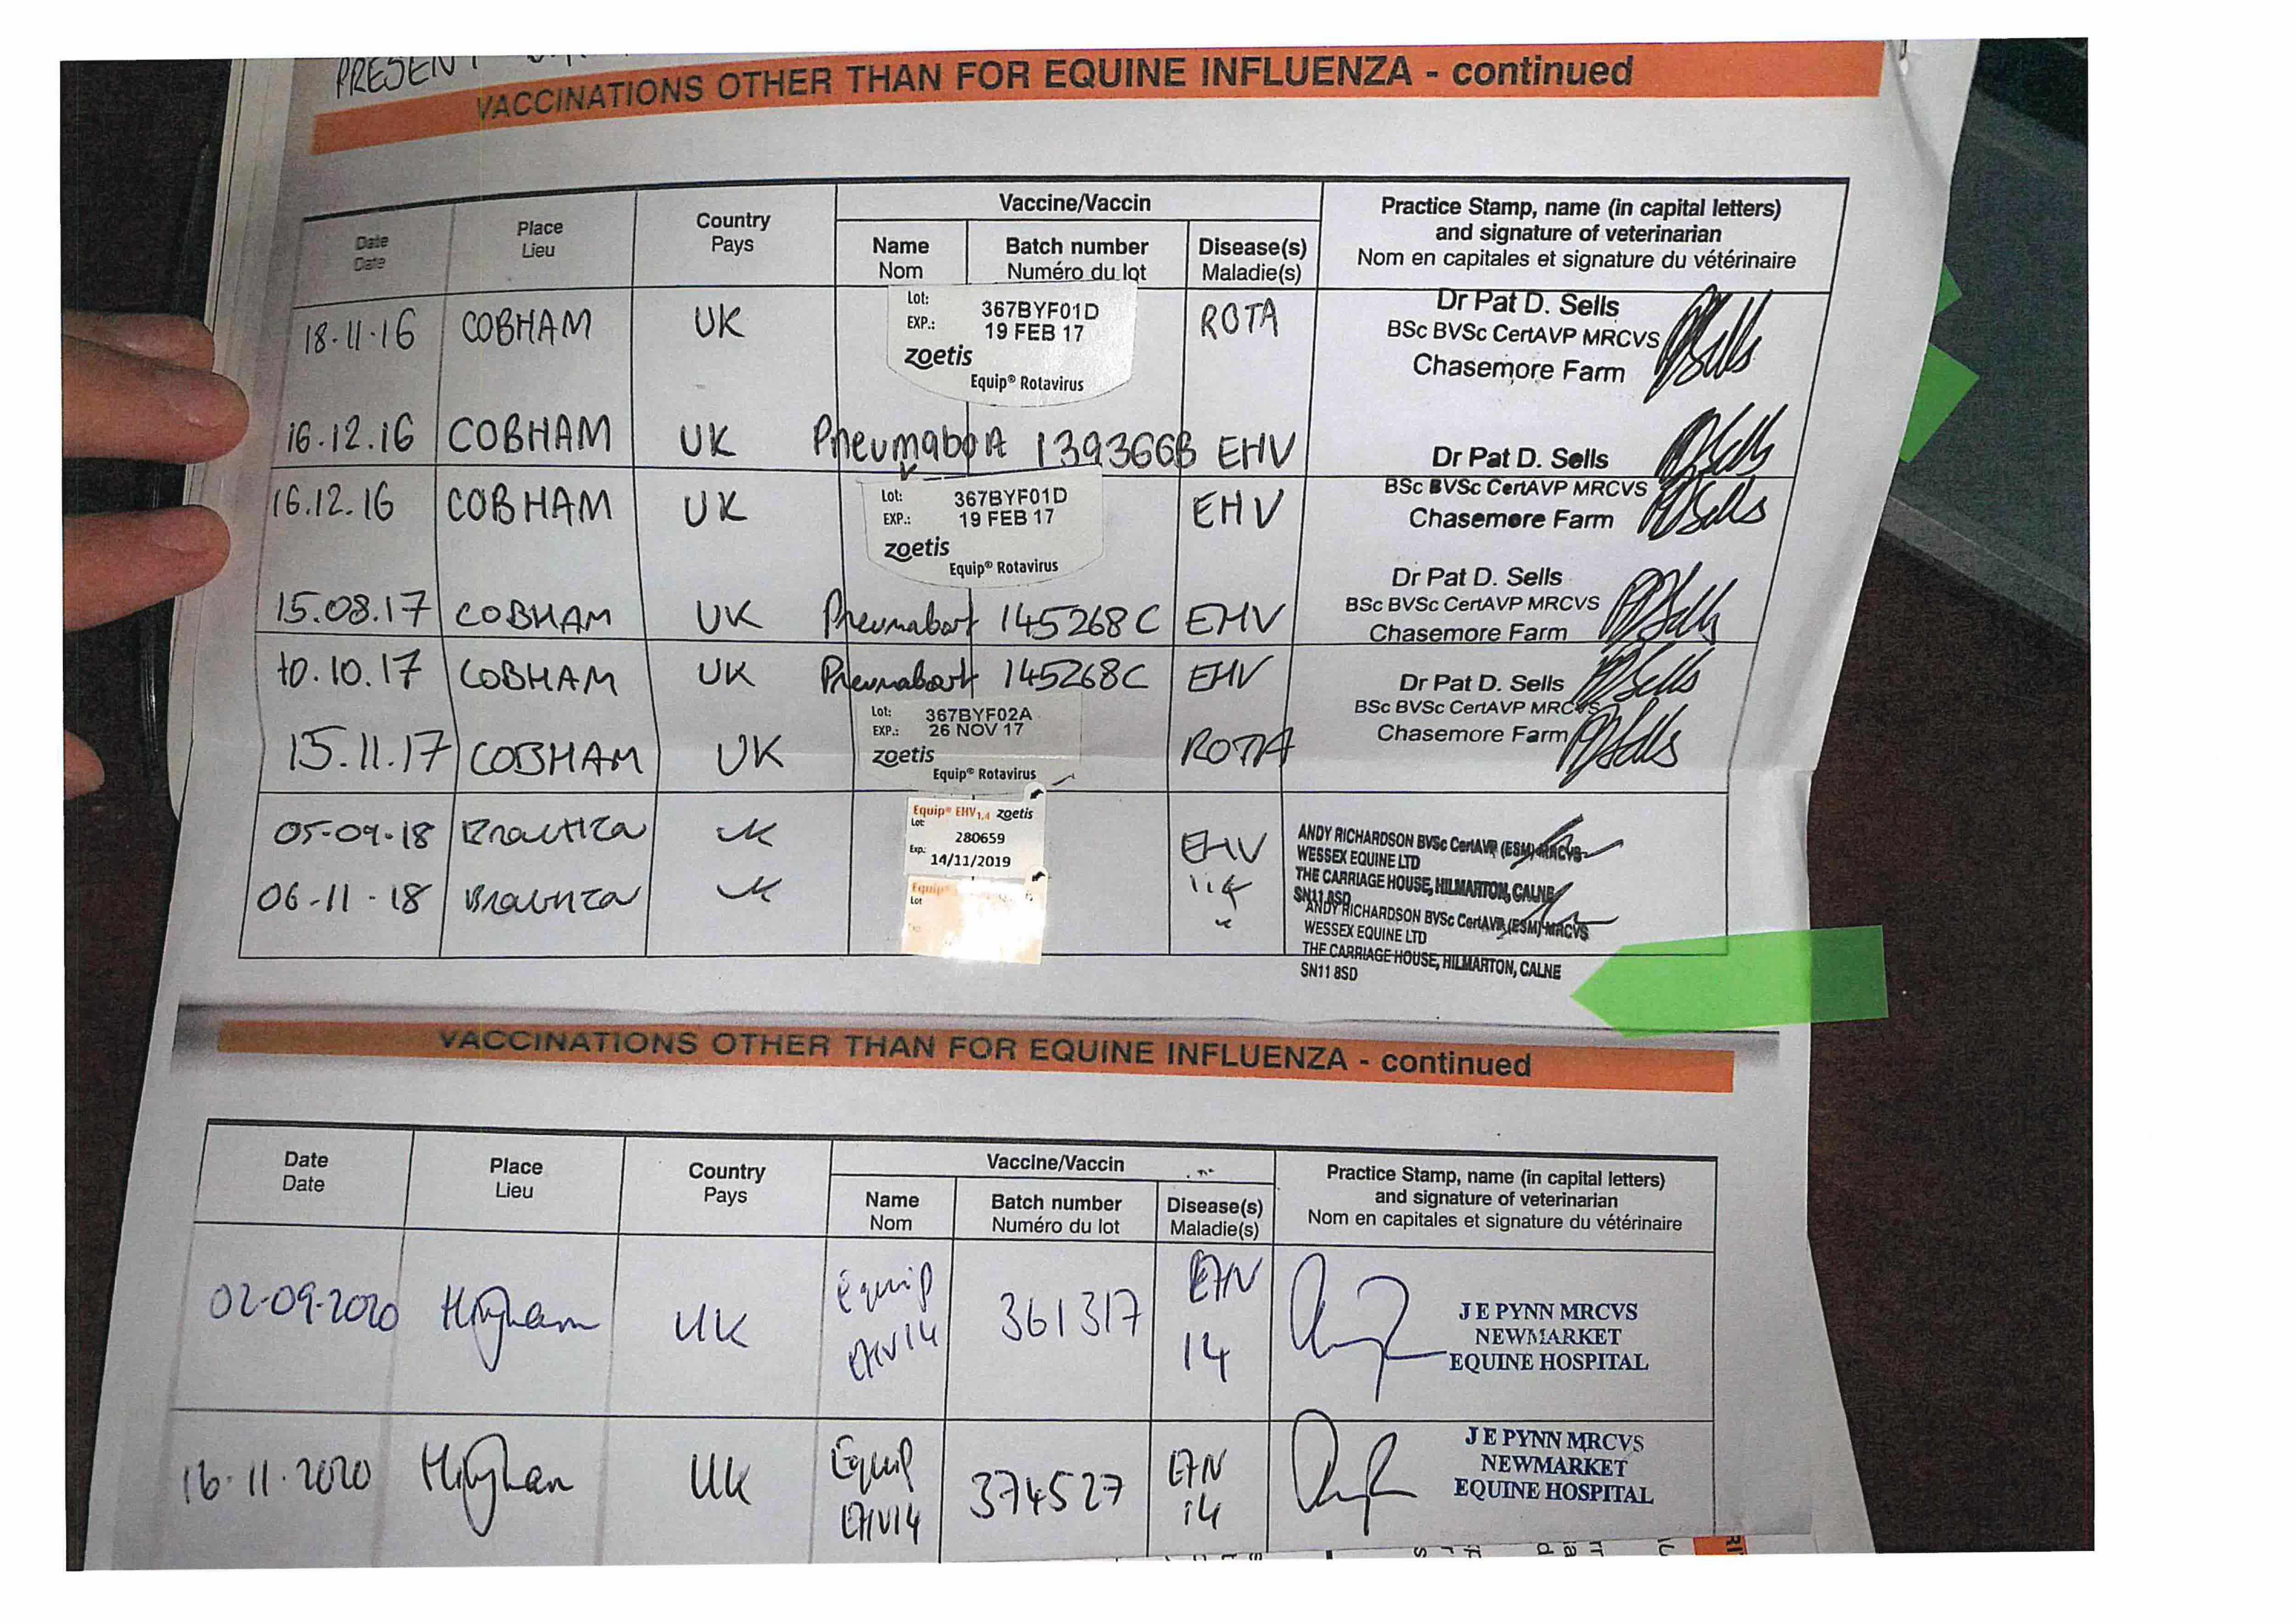 PRESENT
VACCINATIONS OTHER THAN FOR EQUINE INFLUENZA - continued
Date
Date
Place
Lieu
Country
Pays
Vaccine/Vaccin
Name
Nom
Batch number
Numéro du lot
Disease(s)
Maladie(s)
Practice Stamp, name (in capital letters)
and signature of veterinarian
Nom en capitales et signature du vétérinaire
18-11-16 COBHAM UK
Lot: 367BYF01D
EXP.: 19 FEB 17
zoetis
Equip® Rotavirus
ROTA
Dr Pat D. Sells
BSc BVSc CertAVP MRCVS
Chasemore Farm
16.12.16 COBHAM UK Pneumabort 139366B EHV
Dr Pat D. Sells
BSc BVSc CertAVP MRCVS
Chasemore Farm
16.12.16 COBHAM UK
Lot: 367BYF01D
EXP.: 19 FEB 17
zoetis
Equip® Rotavirus
EHV
15.08.17 COBHAM UK Pneumabort 145268C EHV
Dr Pat D. Sells
BSc BVSc CertAVP MRCVS
Chasemore Farm
10.10.17 COBHAM UK Pneumabort 145268C EHV
Dr Pat D. Sells
BSc BVSc CertAVP MRCVS
Chasemore Farm
15.11.17 COBHAM UK
Lot: 367BYF02A
EXP.: 26 NOV 17
zoetis
Equip® Rotavirus
ROTA
05-09-18 UK
Equip® EHV1,4 zoetis
Lot: 280659
Exp.: 14/11/2019
EHV
ANDY RICHARDSON BVSc CertAVP (ESM) MRCVS
WESSEX EQUINE LTD
THE CARRIAGE HOUSE, HILMARTON, CALNE
SN11 8SD
06-11-18 UK
Equip®
Lot
1,4
ANDY RICHARDSON BVSc CertAVP (ESM) MRCVS
WESSEX EQUINE LTD
THE CARRIAGE HOUSE, HILMARTON, CALNE
SN11 8SD
VACCINATIONS OTHER THAN FOR EQUINE INFLUENZA - continued
Date
Date
Place
Lieu
Country
Pays
Vaccine/Vaccin
Name
Nom
Batch number
Numéro du lot
Disease(s)
Maladie(s)
Practice Stamp, name (in capital letters)
and signature of veterinarian
Nom en capitales et signature du vétérinaire
02-09-2020 Higham UK Equip EHV14 361317 EHV 14
J E PYNN MRCVS
NEWMARKET
EQUINE HOSPITAL
16-11-2020 Higham UK Equip EHV14 374527 EHV 14
J E PYNN MRCVS
NEWMARKET
EQUINE HOSPITAL